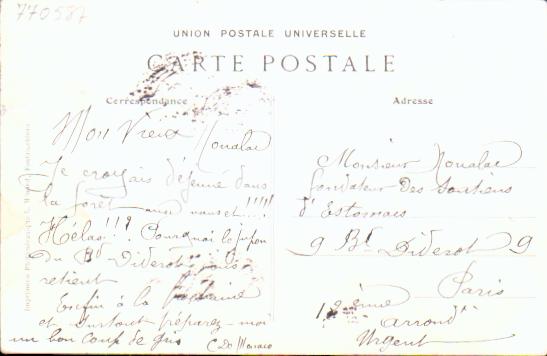 770587
UNION POSTALE UNIVERSELLE
CARTE POSTALE
Correspondance
Adresse
Mon Vieux Noualac
Je croyais déjeuné dans
la forêt !!!!!
Hélas!!! Pourquoi le jupon
du Bd Diderot
retient
Enfin à la
et surtout préparez-moi
un bon coup de gris
C. Do Monaco
Monsieur Noualac
fondateur Des Soutiens
d'Estomacs
9 Bd Diderot 9
Paris
12ème
arrondt
Urgent